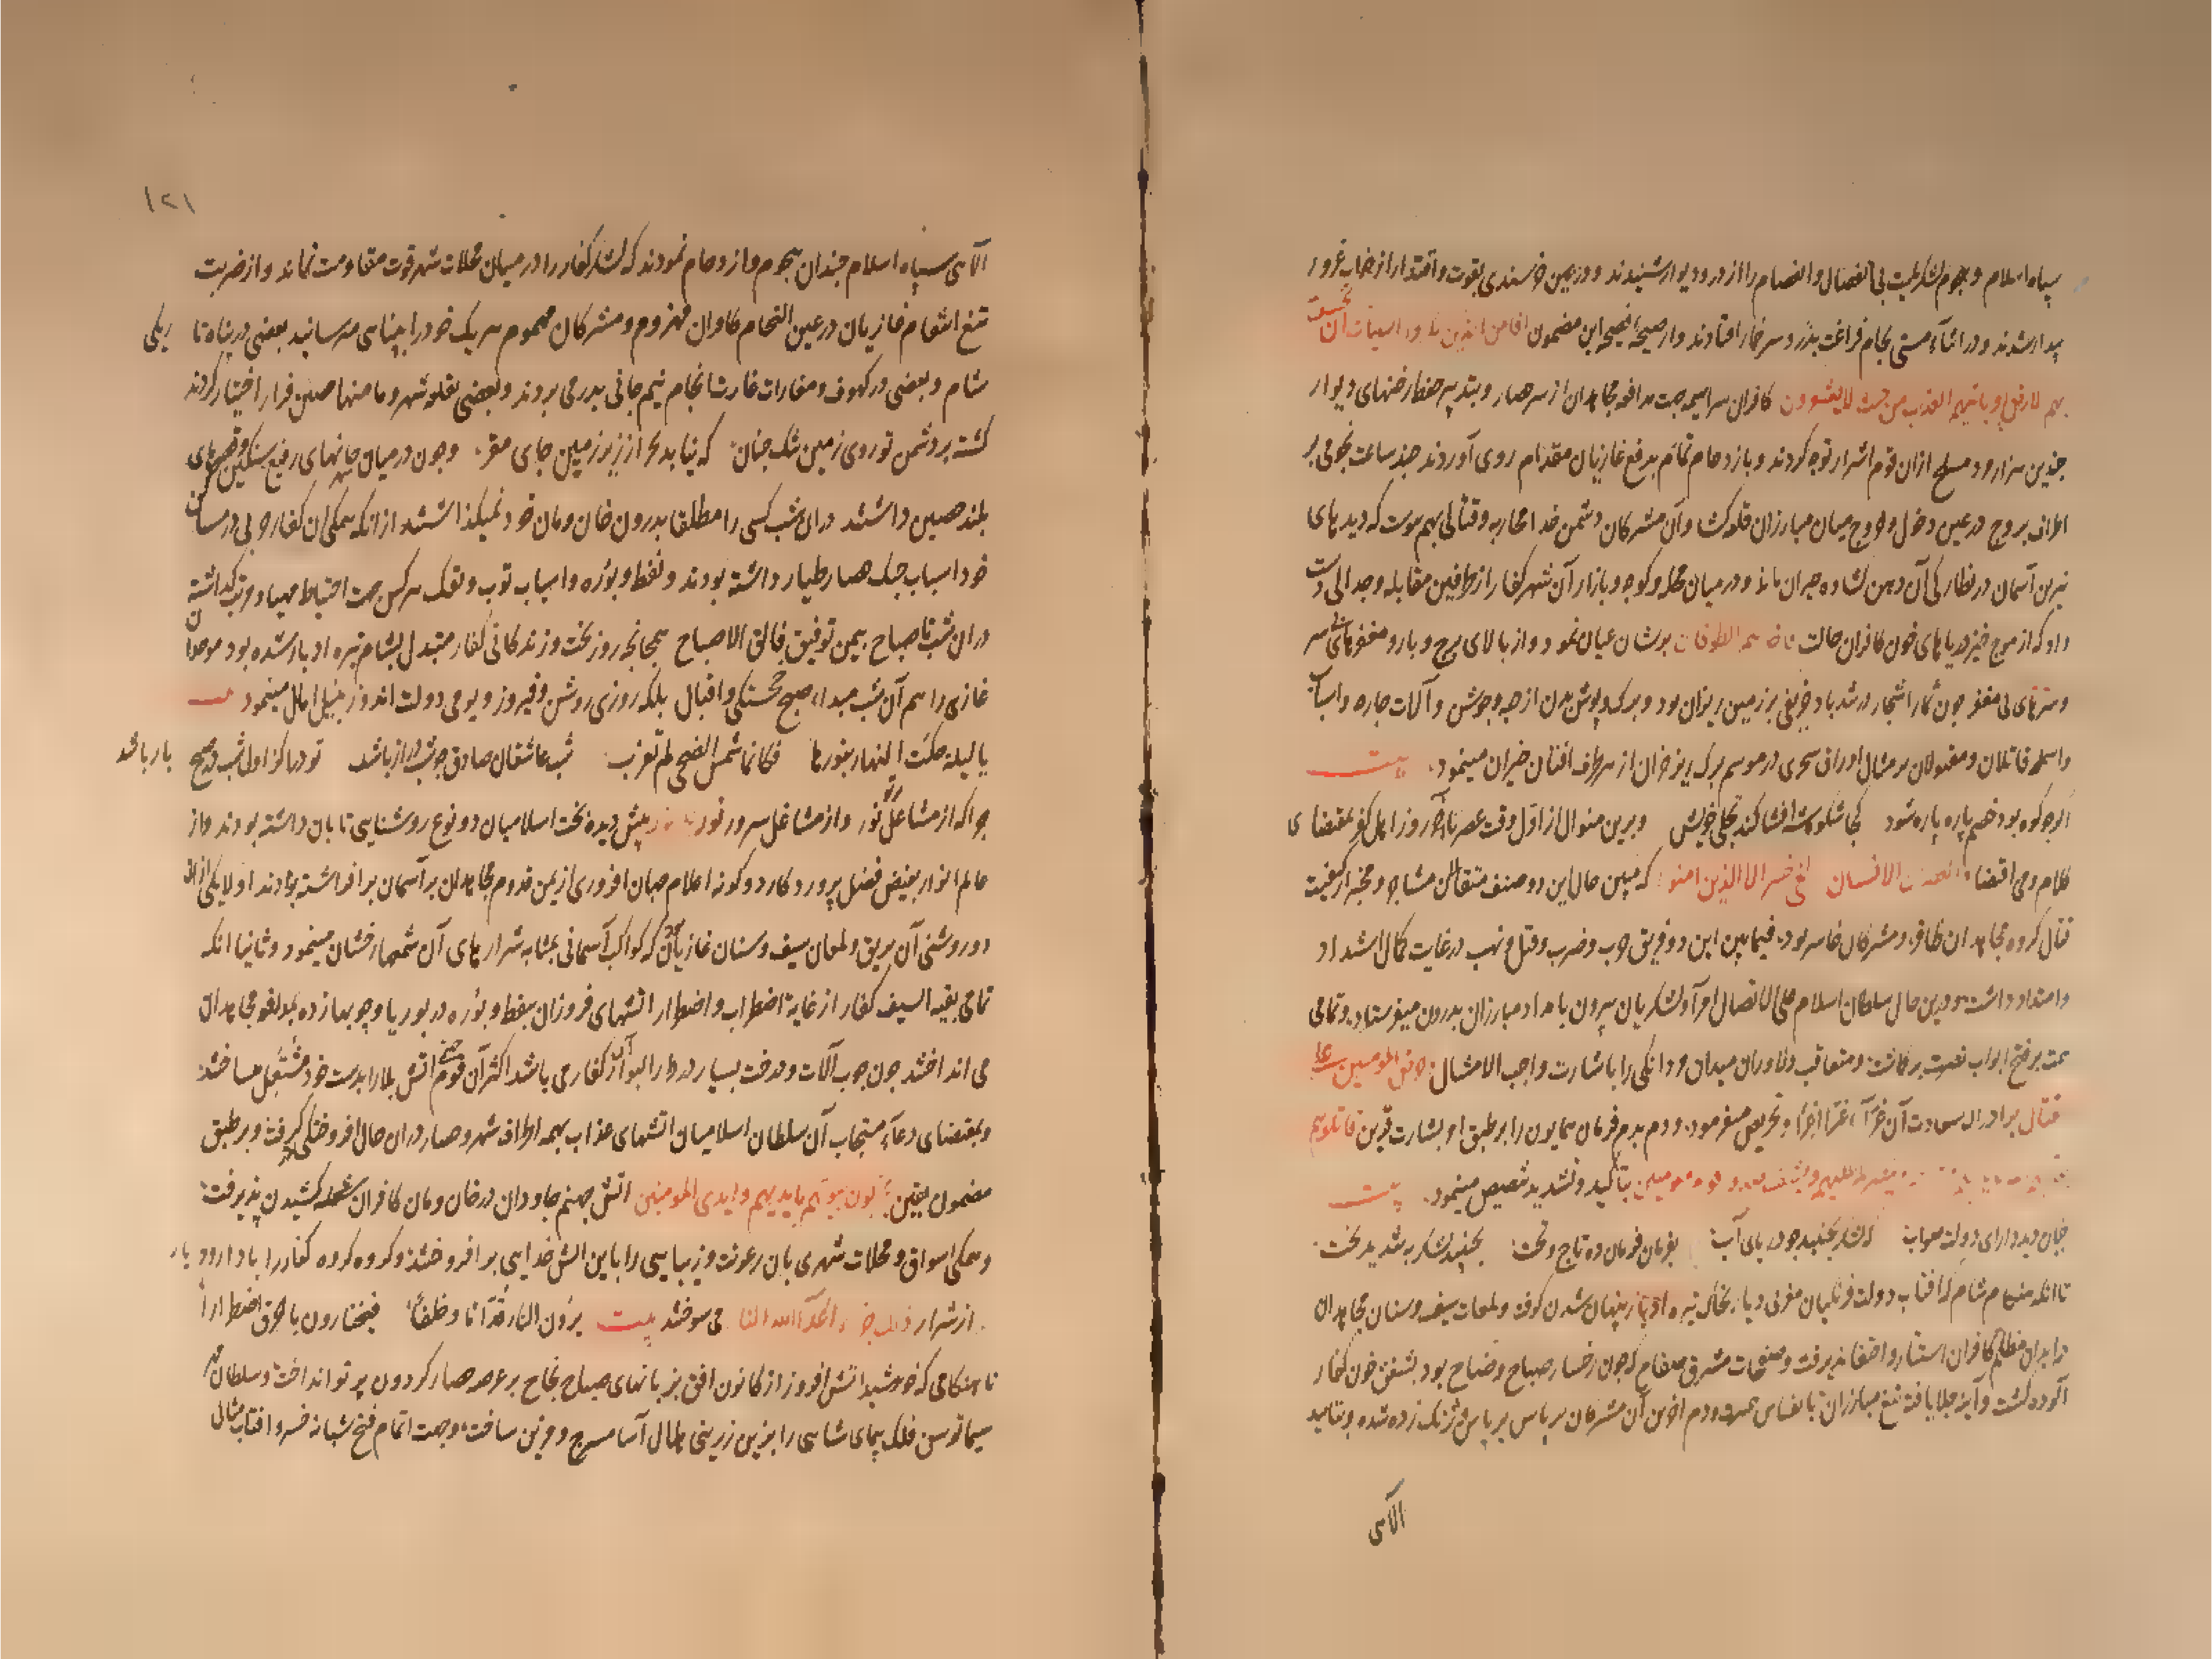 سپاه اسلام و هجوم لشکر غیبت بی انفصال و انفصام را از در و دیوار شنیدند و در زمین خرسندی بقوت و اقتدار از خواب غرور
بیدار شدند و در اثنآء مستی بجام فراغت بدرد سر خمار افتادند و از صیحهٔ فضیحهٔ این مضمون افامن الذین مکروا السیئات ان یخسف
بهم الارض او یاتیهم العذاب من حیث لا یشعرون کافران سراسیمه جهت مدافعه مجاهدان از سر حصار و بتدبیر حفظ رخنهای دیوار
چندین هزار مرد مسلح ازان قوم اشرار توجه کردند و بازدحام تمام بدفع غازیان مقدام روی آوردند چند ساعت نجومی بر
اطراف بروج در عین دخول و خروج میان مبارزان قلعه کشا و آن مشرکان دشمن خدا محاربه و قتالی بهم پیوست که دیدهای
نیرین آسمان در نظارکی آن دهن کشاده حیران ماند و در میان محله و کوچه و بازار آن شهر کفار از طرفین مقابله و جدالی دست
داد که از موج خیز دریاهای خون کافران حالت فاخذهم الطوفان بریشان عیان نمود و از بالای برج و بارو مغفرهای سر
و سرهای بی مغفر چون ثمار اشجار در شد باد خریفی بر زمین ریزان بود و برک و پوشش بدن از جبه و جوشن و آلات جاره و اسباب
و اسلحه قاتلان و مقتولان بر مثال اوراق سحری در موسم برک ریز خزان از هر طرف افتان خیزان مینمود بیت
اکر چه کوه بود خصم پاره پاره شود کجا شکوه شه افشا کند تجلی خویش و برین منوال از اول وقت عصر تا آخر روز اهل کفر بمقتضای
کلام وحی اقتضا و العصر ان الانسان لفی خسر الا الذین امنوا که مبین حال این دو صنف متقابل مشاجر و مخبر از کیفیت
قتال کروه مجاهدان ظافر و مشرکان خاسر بود فیمابین این دو فریق حرب و ضرب و قتل و نهب در غایت کمال اشتداد
و امتداد داشت و درین حال سلطان اسلام علی الاتصال امرآء لشکریان بیرون بامداد مبارزان بدرون میفرستاد و تمامی
همت بر فتح ابواب نصرت برکماشت و متعاقب دلاوران میدان مردانکی را باشارت واجب الامتثال حرض المومنین علی
القتال برادراک سعادت آن غزا تحریص میفرمود و دم بدم فرمان همایون را بر طبق امر بشارت قرین قاتلوهم
ینصرکم علیهم و یشف صدور قوم مومنین بتاکید و تشدید تنصیص مینمود بیت
چنان دید دارای دولت صواب که لشکر بجنبد چو دریای آب بفرمان فرمان ده تاج و تخت بجنبید لشکر بشدید بخت
تا انکه هنکام شام که افتاب دولت فرنکیان مغربی دیار بخاک تیره ادبار پنهان شدن کرفت و لمعات سیف و سنان مجاهدان
در ابدان مظلم کافران استتار و اختفا پذیرفت و صفحات مشرق صمصام که چون رخسار صباح وضاح بود بشفق خون کفار
آلوده کشت و آینه جلا یافته تیغ مبارزان بانفاس سرد و دم اخرین آن مشرکان زنک زده شده و بتایید
الآهی
۱۲۱
الآهی سپاه اسلام چندان هجوم و ازدحام نمودند که لشکر کفار را در میان محلات شهر قوت مقاومت نماند و از ضربت
تیغ انتقام غازیان در عین التحام کافران مهزوم و مشرکان مهموم هر یک خود را بپناهی میرسانید بعضی در پناه تاریکی
شام و بعضی در کهوف و مغارات غارت انجام نیم جانی بدر می بردند و بعضی بقلعه شهر و مامنها حصین فرار اختیار کردند
کشته بر دشمن تو روی زمین تنک چنان که نیابد بجز از زیر زمین جای مقر و چون در میان خانهای رفیع سنکین و قصرهای
بلند حصین داشتند دران شب کسی را مطلقا بدرون خان و مان خود نمیکذاشتند از انکه همکی ان کفار حربی در مساکن
خود اسباب جنک حصار طیار داشته بودند و نفط و بوره و اسباب توب و تفک هر کس جهت احتیاط مهیا و مرتب کذاشته
دران شب تا صباح بیمن توفیق فالق الاصباح همچنانچه روز بخت و زندکانی کفار متبدل بشام تیره ادبار شده بود موحدان
غازی را هم آن شب مبداء صبح خجستکی و اقبال بلکه روزی روشن و فیروز و یومی دولت اندوز بنیل امال مینمود بیت
یا لیلة حکت النهار بنورها فکانما شمس الضحی لم تغرب شب عاشقان صادق چه شب دراز باشد تو درا کز اول شب در صبح باز باشد
چرا که از مشاعل نور و از مشاغل سرور پیش دیده بخت اسلامیان دو نوع روشنایی تابان داشته بودند و از
عالم انوار بفیض فضل پروردکار دو کونه اعلام جهان افروزی از یمن قدوم مجاهدان بر آسمان بر افراشته بودند اولا یکی ازان
دو روشنی آن بریق و لمعان سیف و سنان غازیان که کواکب آسمانی بمثابه شرارهای آن شمعها رخشان مینمود و ثانیا انکه
تمامی بقیه السیف کفار از غایة اضطراب و اضطرار اتشهای فروزان بنفط و بوره در بوریا و چوبها زده بدفع مجاهدان
می انداختند چون چوب آلات و درخت بسیار در دار البوار کفار می باشد اکثر آن قوم جهنمی اتش بلا را بدست خود مشتعل میساختند
و بمقتضای دعآء مستجاب آن سلطان اسلامیان اتشهای عذاب بهمه اطراف شهر و حصار دران حال افروختکی کرفت و بر طبق
مضمون یقین یخربون بیوتهم بایدیهم و ایدی المومنین اتش جهنم جاودان در خان و مان کافران شعله کشیدن پذیرفت
و همکی اسواق و محلات شهری بان رعونت و زیبایی را باین اتش خدایی بر افروختند و کروه کروه کفار را با دار و دیار
از شرار می سوختند بیت یرون النار قدآما و خلفا فیختارون بالحرق اضطرارا
تا هنکامی که خورشید اتش افروز از کانون افق بزبانهای صباح نجاح بر عرصه حصار کردون پرتو انداخت و سلطان
سیما توسن فلک پیمای شاهی را بزین زرینی هلال آسا مسرج و مزین ساخت و جهت اتمام فتح شبانه خسرو افتاب مثالی